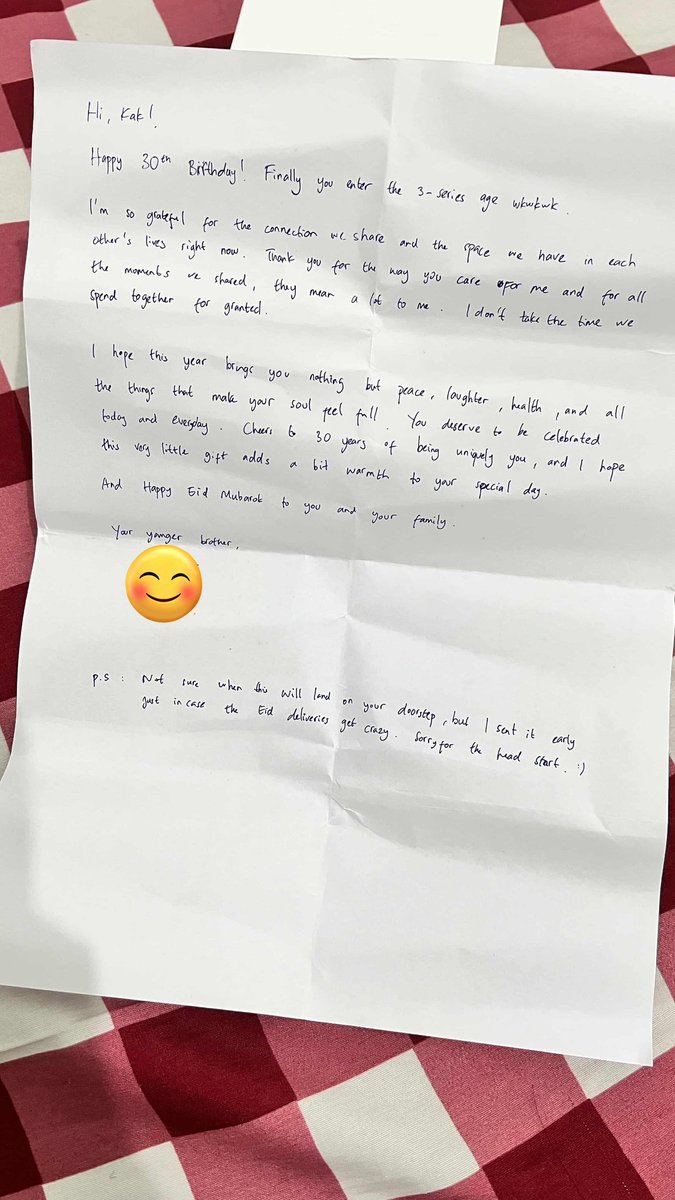 Hi, Kak!
Happy 30th Birthday! Finally you enter the 3-series age wkwkwk.
I'm so grateful for the connection we share and the space we have in each
other's lives right now. Thank you for the way you care for me and for all
the moments we shared, they mean a lot to me. I don't take the time we
spend together for granted.
I hope this year brings you nothing but peace, laughter, health, and all
the things that make your soul feel full. You deserve to be celebrated
today and everyday. Cheers to 30 years of being uniquely you, and I hope
this very little gift adds a bit warmth to your special day.
And Happy Eid Mubarak to you and your family.
Your younger brother,
p.s : Not sure when this will land on your doorstep, but I sent it early
just in case the Eid deliveries get crazy. Sorry for the head start. :)